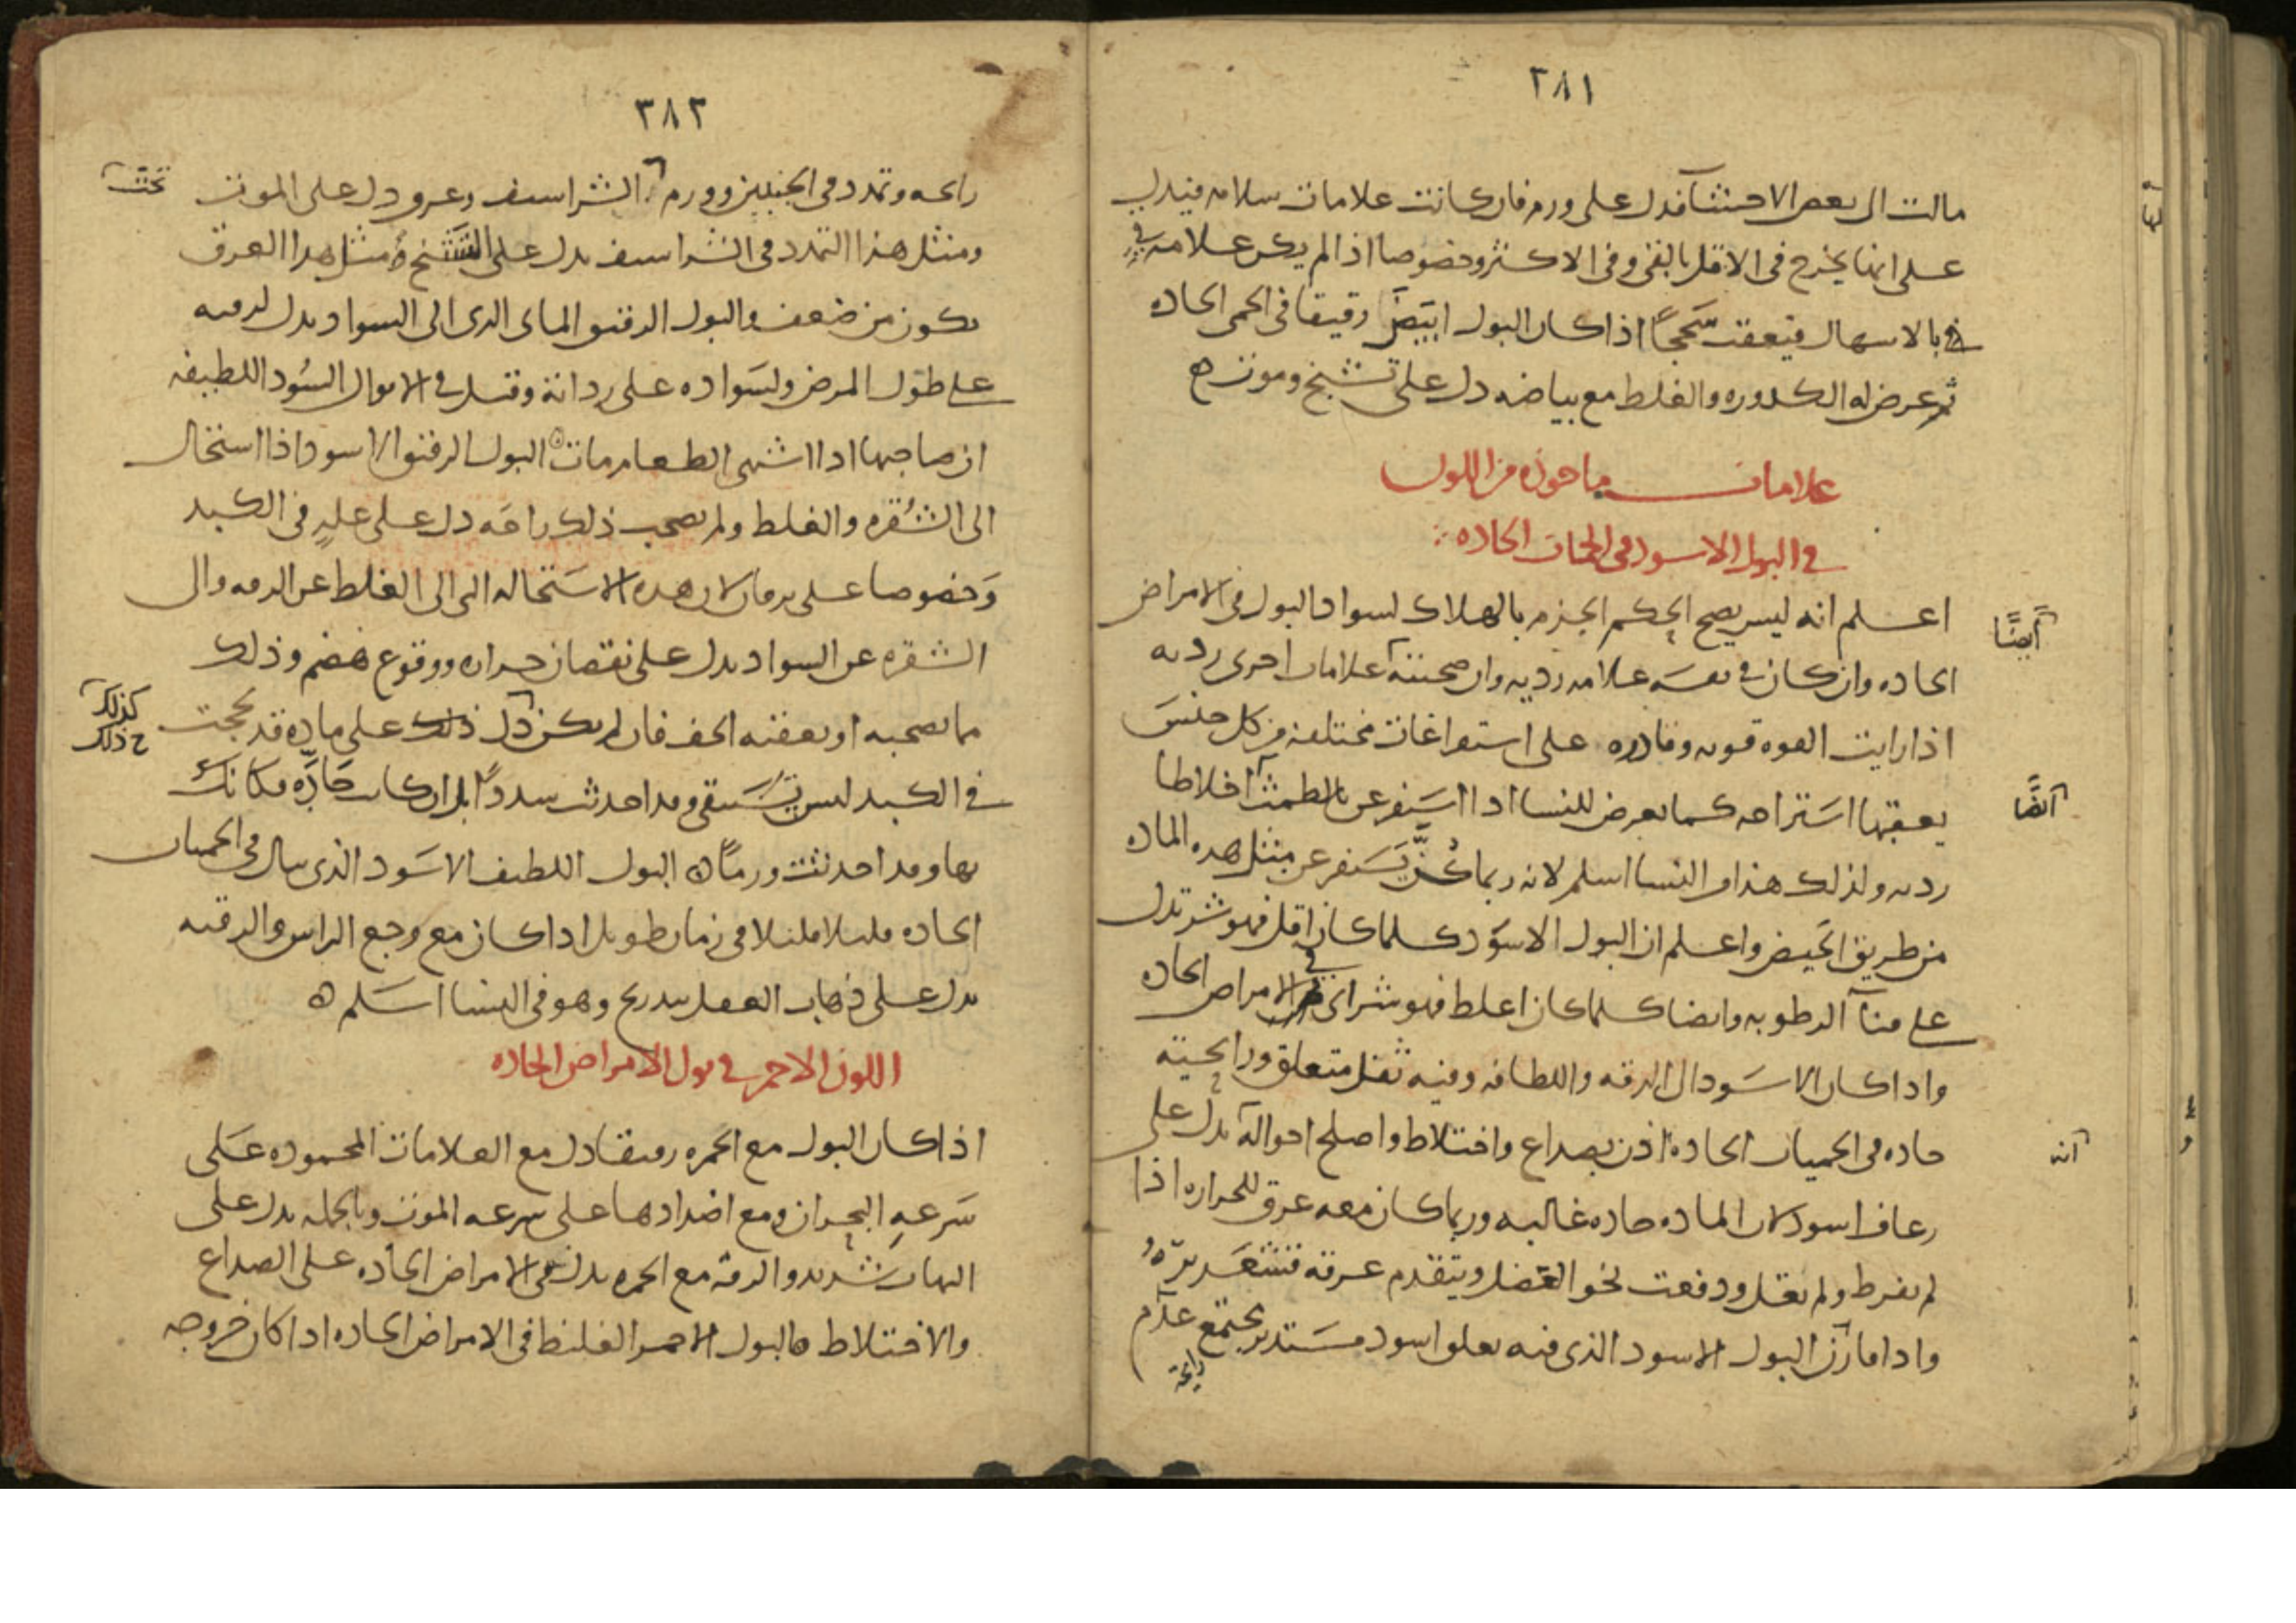 ٣٨١
مالت الى بعض الاحشا فدل على ورم فان كانت علامات سلامه فيدل
على انها يخرج فى الاقل بالقى وفى الاكثر وخصوصا اذا لم يكن علامه فى
بالاسهال فيعقب سحجًا اذا كان البول ابيض رقيقا فى الحمى الحاده
ثم عرض له الكدوره والغلط مع بياضه دل على تشنج وموت ه
علامات ماخوذه من اللون
فى البول الاسود فى الحميات الحاده
اعلم انه ليس يصح الحكم الجزم بالهلاك لسواد البول فى الامراض
أيضًا
الحاده وان كان فى نفسه علامه رديه وان صحبته علامات اخرى رديه
اذا رايت القوه قويه وقادره على استفراغات مختلفه من كل جنس
يعقبها استراحه كما يعرض للنسا اذا استفرغن بالطمث اخلاطا
آنفًا
رديه ولذلك هذا فى النسا اسلم لانه ربما كُنَّ يستفرغن مثل هذه الماده
من طريق الحيض واعلم ان البول الاسود كلما كان اقل فهو شر تدل
على فنآ الرطوبه وايضا كلما كان اغلط فهو شر اى فى الامراض الحاده
واذا كان الاسود الى الرقه واللطافه وفيه ثفل متعلق ورايحته
حاده فى الحميات الحاده اذن بصداع واختلاط واصلح احواله يدل على
انه
رعاف اسود لان الماده حاده غالبه وربما كان معه عرق للحراره اذا
لم يفرط ولم يقل ودفعت نحو العضل ويتقدم عرقه قشعريره
واذا قارن البول الاسود الذى فيه تعلق اسود مستدير مجتمع عدم
رايحة
٣٨٢
رايحه وتمدد فى الجنبين وورم الشراسيف وعرق دل على الموت
تحت
ومثل هذا التمدد فى الشراسيف يدل على التشنج ومثل هذا العرق
يكون من ضعف والبول الرقيق الماى الذى الى السواد يدل لرقته
على طول المرض ولسواده على رداته وقيل فى الابوال السُود اللطيفه
ان صاحبها اذا اشتهى الطعام مات ه البول الرقيق الاسود اذا استحال
الى الشُقره والغلط ولم يصحب ذلك راحه دل على علهٍ فى الكبد
وَخصوصا على يرقان لان هذه الاستحاله التى الى الغلط عن الرقه والى
الشقره عن السواد يدل على نقصان حراره ووقوع هضم وذلك
مما يصحبه او يعقبه الخف فان لم يكن دل ذلك على ماده قد لحجت
كذلك
خ ذلك
فى الكبد ليس تستنقى وقد احدثت سددًا بل ان كانت حادّه فكانك
بها وقد احدثت ورمًا ه البول اللطيف الاسود الذى يبال فى الحميات
الحاده قليلا قليلا فى زمان طويل اذا كان مع وجع الراس والرقبه
يدل على ذهاب العقل بتدريج وهو فى النسا اسلم ه
اللون الاحمر فى بول الامراض الحاده
اذا كان البول مع الحمره رقيقا دل مع العلامات المحموده على
سرعهِ البحران ومع اضدادها على سرعه الموت وبالجمله يدل على
التهاب شديد والرقه مع الحمره يدل فى الامراض الحاده على الصداع
والاختلاط ه البول الاحمر الغليظ فى الامراض الحاده اذا كان خروجه